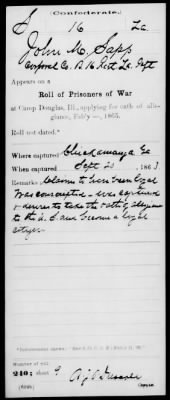 Confederate.
S 16 La.
John M. Sapps
Corporal Co. A 16 Regt La. Inft
Appears on a
Roll of Prisoners of War
at Camp Douglas, Ill., applying for oath of alle-
giance, Feb'y —, 1865.
Roll not dated.*
Where captured Chickamauga Ga
When captured Sept 20, 1863.
Remarks Claims to have been loyal
was conscripted - was captured
desires to take the oath of allegiance
to the U.S. and become a loyal
citizen.
Number of roll
240; sheet 9
Copyist.